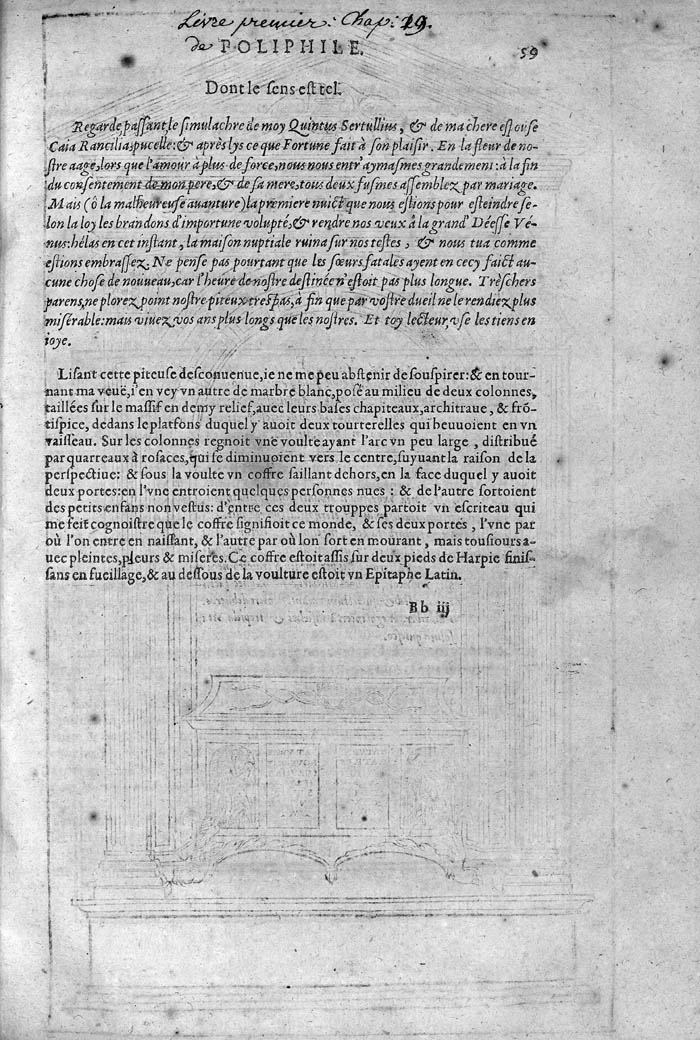 Livre premier. Chap. 19.
de POLIPHILE. 59
Dont le sens est tel.
Regarde passant, le simulachre de moy Quintus Sertullius, & de ma chere espouse
Caia Rancilia, pucelle: & après lys ce que Fortune fait à son plaisir. En la fleur de no-
stre aage, lors que l'amour à plus de force, nous nous entr'aymasmes grandement: à la fin
du consentement de mon pere, & de sa mere, tous deux fusmes assemblez par mariage.
Mais (ô la malheureuse avanture) la premiere nuict que nous estions pour esteindre se-
lon la loy les brandons d'importune volupté, & rendre nos veux à la grand' Déesse Vé-
nus: hélas en cet instant, la maison nuptiale ruina sur nos testes, & nous tua comme
estions embrassez. Ne pense pas pourtant que les sœurs fatales ayent en cecy faict au-
cune chose de nouveau, car l'heure de nostre destinée n'estoit pas plus longue. Trèschers
parens, ne plorez point nostre piteux trespas, à fin que par vostre dueil ne le rendiez plus
misérable: mais vivez vos ans plus longs que les nostres. Et toy lecteur, vse les tiens en
ioye.
Lisant cette piteuse desconuenue, ie ne me peu abstenir de souspirer: & en tour-
nant ma veuë, i'en vey vn autre de marbre blanc, posé au milieu de deux colonnes,
taillées sur le massif en demy relief, auec leurs bases chapiteaux, architraue, & frõ-
tispice, dedans le platfons duquel y auoit deux tourterelles qui beuuoient en vn
vaisseau. Sur les colonnes regnoit vne voulte ayant l'arc vn peu large, distribué
par quarreaux à rosaces, qui se diminuoient vers le centre, suyuant la raison de la
perspectiue: & sous la voulte vn coffre saillant dehors, en la face duquel y auoit
deux portes: en l'vne entroient quelques personnes nues: & de l'autre sortoient
des petits enfans non vestus: d'entre ces deux trouppes partoit vn escriteau qui
me feit cognoistre que le coffre signifioit ce monde, & ses deux portes, l'vne par
où l'on entre en naissant, & l'autre par où lon sort en mourant, mais tousiours a-
uec pleintes, pleurs & miseres. Ce coffre estoit assis sur deux pieds de Harpie finis-
sans en fueillage, & au dessous de la voulture estoit vn Epitaphe Latin.
Bb iij